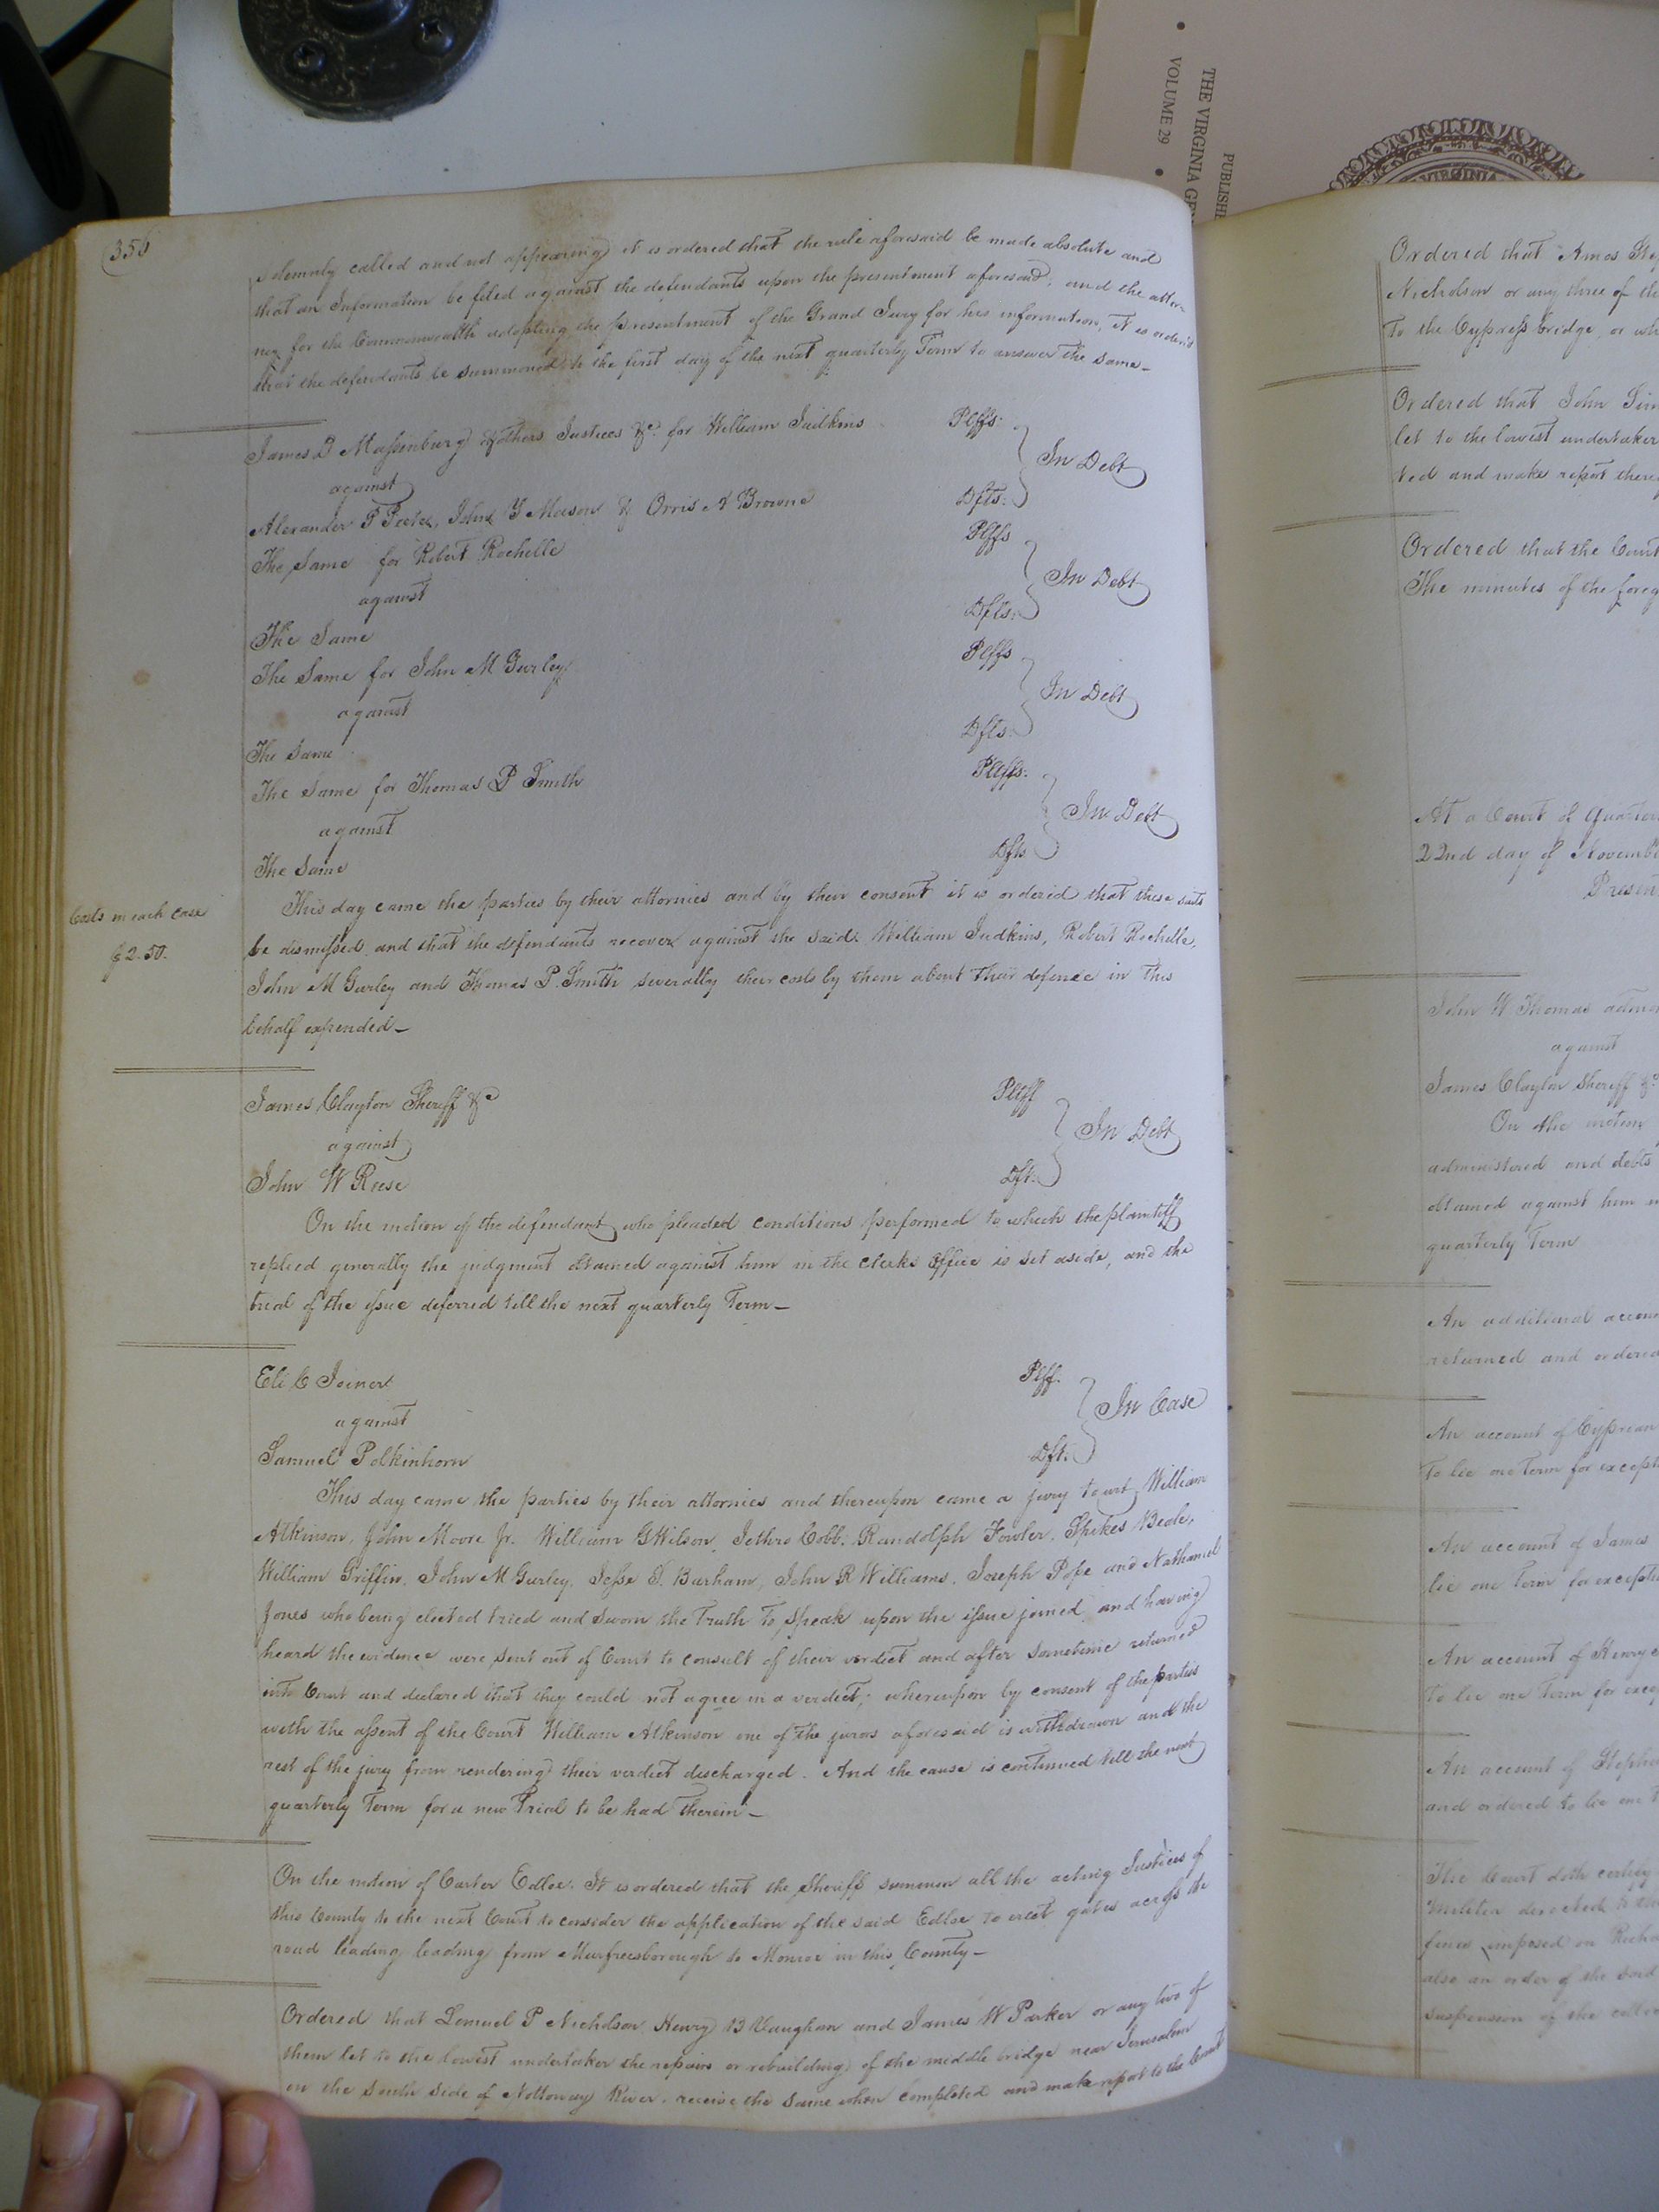 THE VIRGINIA
VOLUME 29 •
PUBLISH
VIRGINIA
356
solemnly called and not appearing it is ordered that the rule aforesaid be made absolute and
that an Information be filed against the defendants upon the presentment aforesaid, and the attor-
ney for the Commonwealth adopting the presentment of the Grand Jury for his information, it is ordered
that the defendants be summoned to the first day of the next quarterly Term to answer the same—
James D Massenburg & others Justices &c. for William Judkins Plffs.
against In Debt
Alexander P Peete, John Y Mason & Orris A Browne Dfts.
The Same for Robert Rochelle Plffs
against In Debt
The Same Dfts.
The Same for John M Gurley Plffs
against In Debt
The Same Dfts.
The Same for Thomas P Smith Plffs.
against In Debt
The Same Dfts
This day came the parties by their attornies and by their consent it is ordered that these suits
Costs in each case
$2.50.
be dismissed and that the defendants recover against the said William Judkins, Robert Rochelle,
John M Gurley and Thomas P. Smith severally their costs by them about their defence in this
behalf expended—
James Clayton Sheriff &c Plff
against In Debt
John W Reese Dft.
On the motion of the defendant who pleaded conditions performed to which the plaintiff
replied generally the judgment obtained against him in the Clerks Office is set aside, and the
trial of the issue deferred till the next quarterly Term—
Eli C Joiner Plff.
against In Case
Samuel Polkinhorn Dft.
This day came the parties by their attornies and thereupon came a jury to wit William
Atkinson, John Moore Jr. William G Wilson, Jethro Cobb, Randolph Fowler, Spikes Beale,
William Griffin, John M Gurley, Jesse S. Barham, John R Williams, Joseph Pope and Nathaniel
Jones who being elected tried and sworn the truth to speak upon the issue joined, and having
heard the evidence were sent out of Court to consult of their verdict and after sometime returned
into Court and declared that they could not agree in a verdict; whereupon by consent of the parties
with the assent of the Court William Atkinson one of the jurors aforesaid is withdrawn and the
rest of the jury from rendering their verdict discharged. And the cause is continued till the next
quarterly Term for a new Trial to be had therein—
On the motion of Carter Edloe. It is ordered that the Sheriff summon all the acting Justices of
this County to the next Court to consider the application of the said Edloe to erect gates across the
road leading leading from Murfreesborough to Monroe in this County—
Ordered that Lemuel P Nicholson Henry B Vaughan and James W Parker or any two of
them let to the lowest undertaker the repairs or rebuilding of the middle bridge near Jerusalem
on the South Side of Nottoway River, receive the same when completed and make report to the Court
Ordered that Amos
Nicholson or any three of the
To the Cypress bridge, or
Ordered that John
let to the lowest undertaker
ted and make report
Ordered that the Court
The minutes of the
At a Court of
22nd day of November
John W Thomas
against
James Clayton Sheriff &c
On the motion
administered and debts
obtained against him
quarterly Term
An additional
returned and ordered
An account of Cyprean
to lie one Term for
An account of James
lie one Term for
An account of Henry
to lie one Term for
An account of
and ordered to lie one
The Court doth certify
fines imposed on
also an order of the said
suspension of the